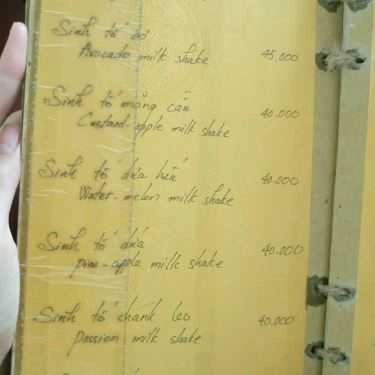 Sinh tố bơ
Avocado milk shake 45.000
Sinh tố mãng cầu
Custard-apple milk shake 40.000
Sinh tố dưa hấu
Water-melon milk shake 40.000
Sinh tố dứa
pine-apple milk shake 40.000
Sinh tố chanh leo
passion milk shake 40.000